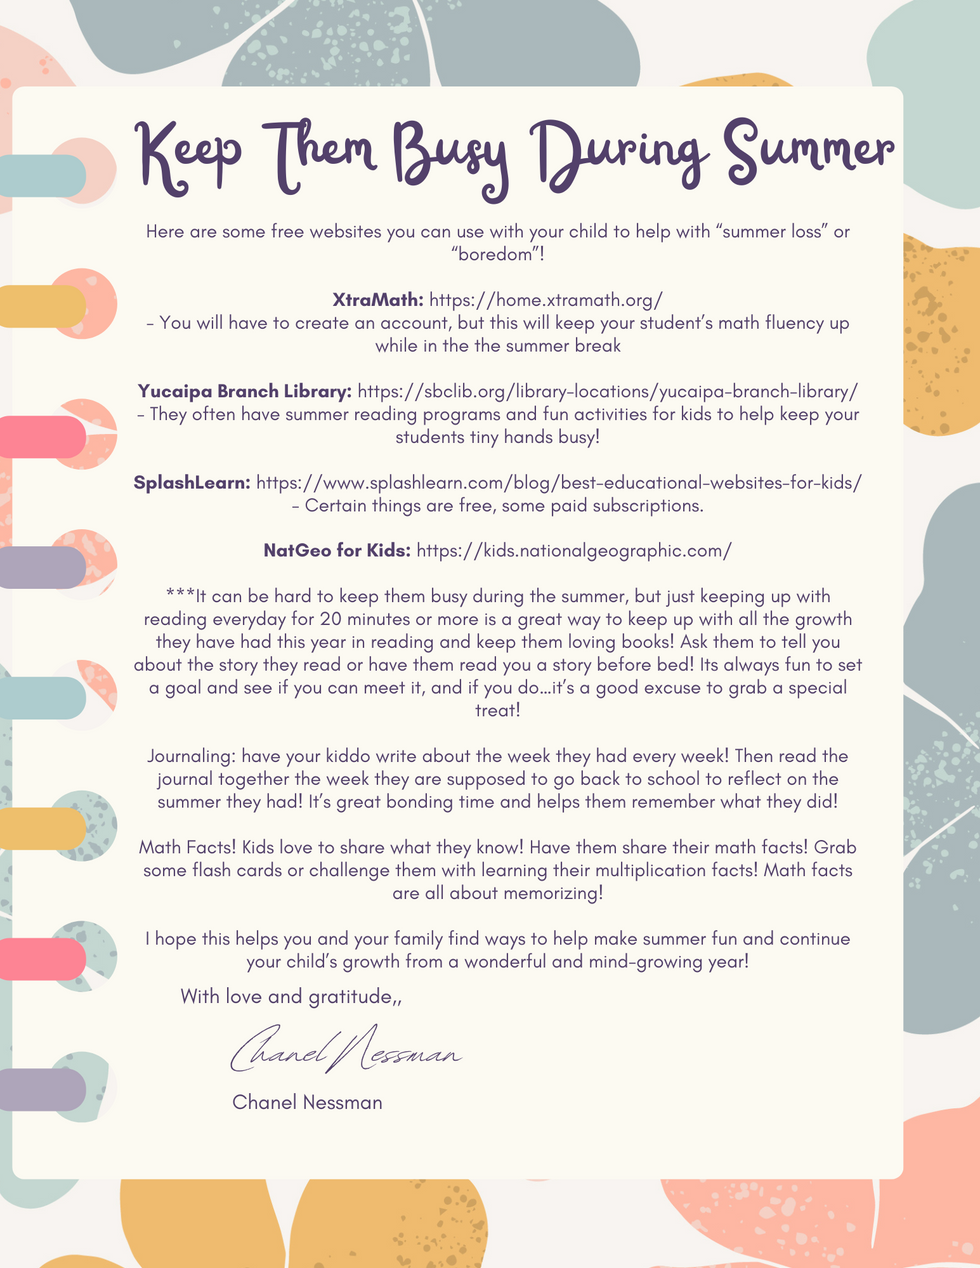 Keep Them Busy During Summer
Here are some free websites you can use with your child to help with “summer loss” or
“boredom”!
XtraMath: https://home.xtramath.org/
- You will have to create an account, but this will keep your student’s math fluency up
while in the the summer break
Yucaipa Branch Library: https://sbclib.org/library-locations/yucaipa-branch-library/
- They often have summer reading programs and fun activities for kids to help keep your
students tiny hands busy!
SplashLearn: https://www.splashlearn.com/blog/best-educational-websites-for-kids/
- Certain things are free, some paid subscriptions.
NatGeo for Kids: https://kids.nationalgeographic.com/
***It can be hard to keep them busy during the summer, but just keeping up with
reading everyday for 20 minutes or more is a great way to keep up with all the growth
they have had this year in reading and keep them loving books! Ask them to tell you
about the story they read or have them read you a story before bed! Its always fun to set
a goal and see if you can meet it, and if you do...it’s a good excuse to grab a special
treat!
Journaling: have your kiddo write about the week they had every week! Then read the
journal together the week they are supposed to go back to school to reflect on the
summer they had! It’s great bonding time and helps them remember what they did!
Math Facts! Kids love to share what they know! Have them share their math facts! Grab
some flash cards or challenge them with learning their multiplication facts! Math facts
are all about memorizing!
I hope this helps you and your family find ways to help make summer fun and continue
your child’s growth from a wonderful and mind-growing year!
With love and gratitude,,
Chanel Nessman
Chanel Nessman